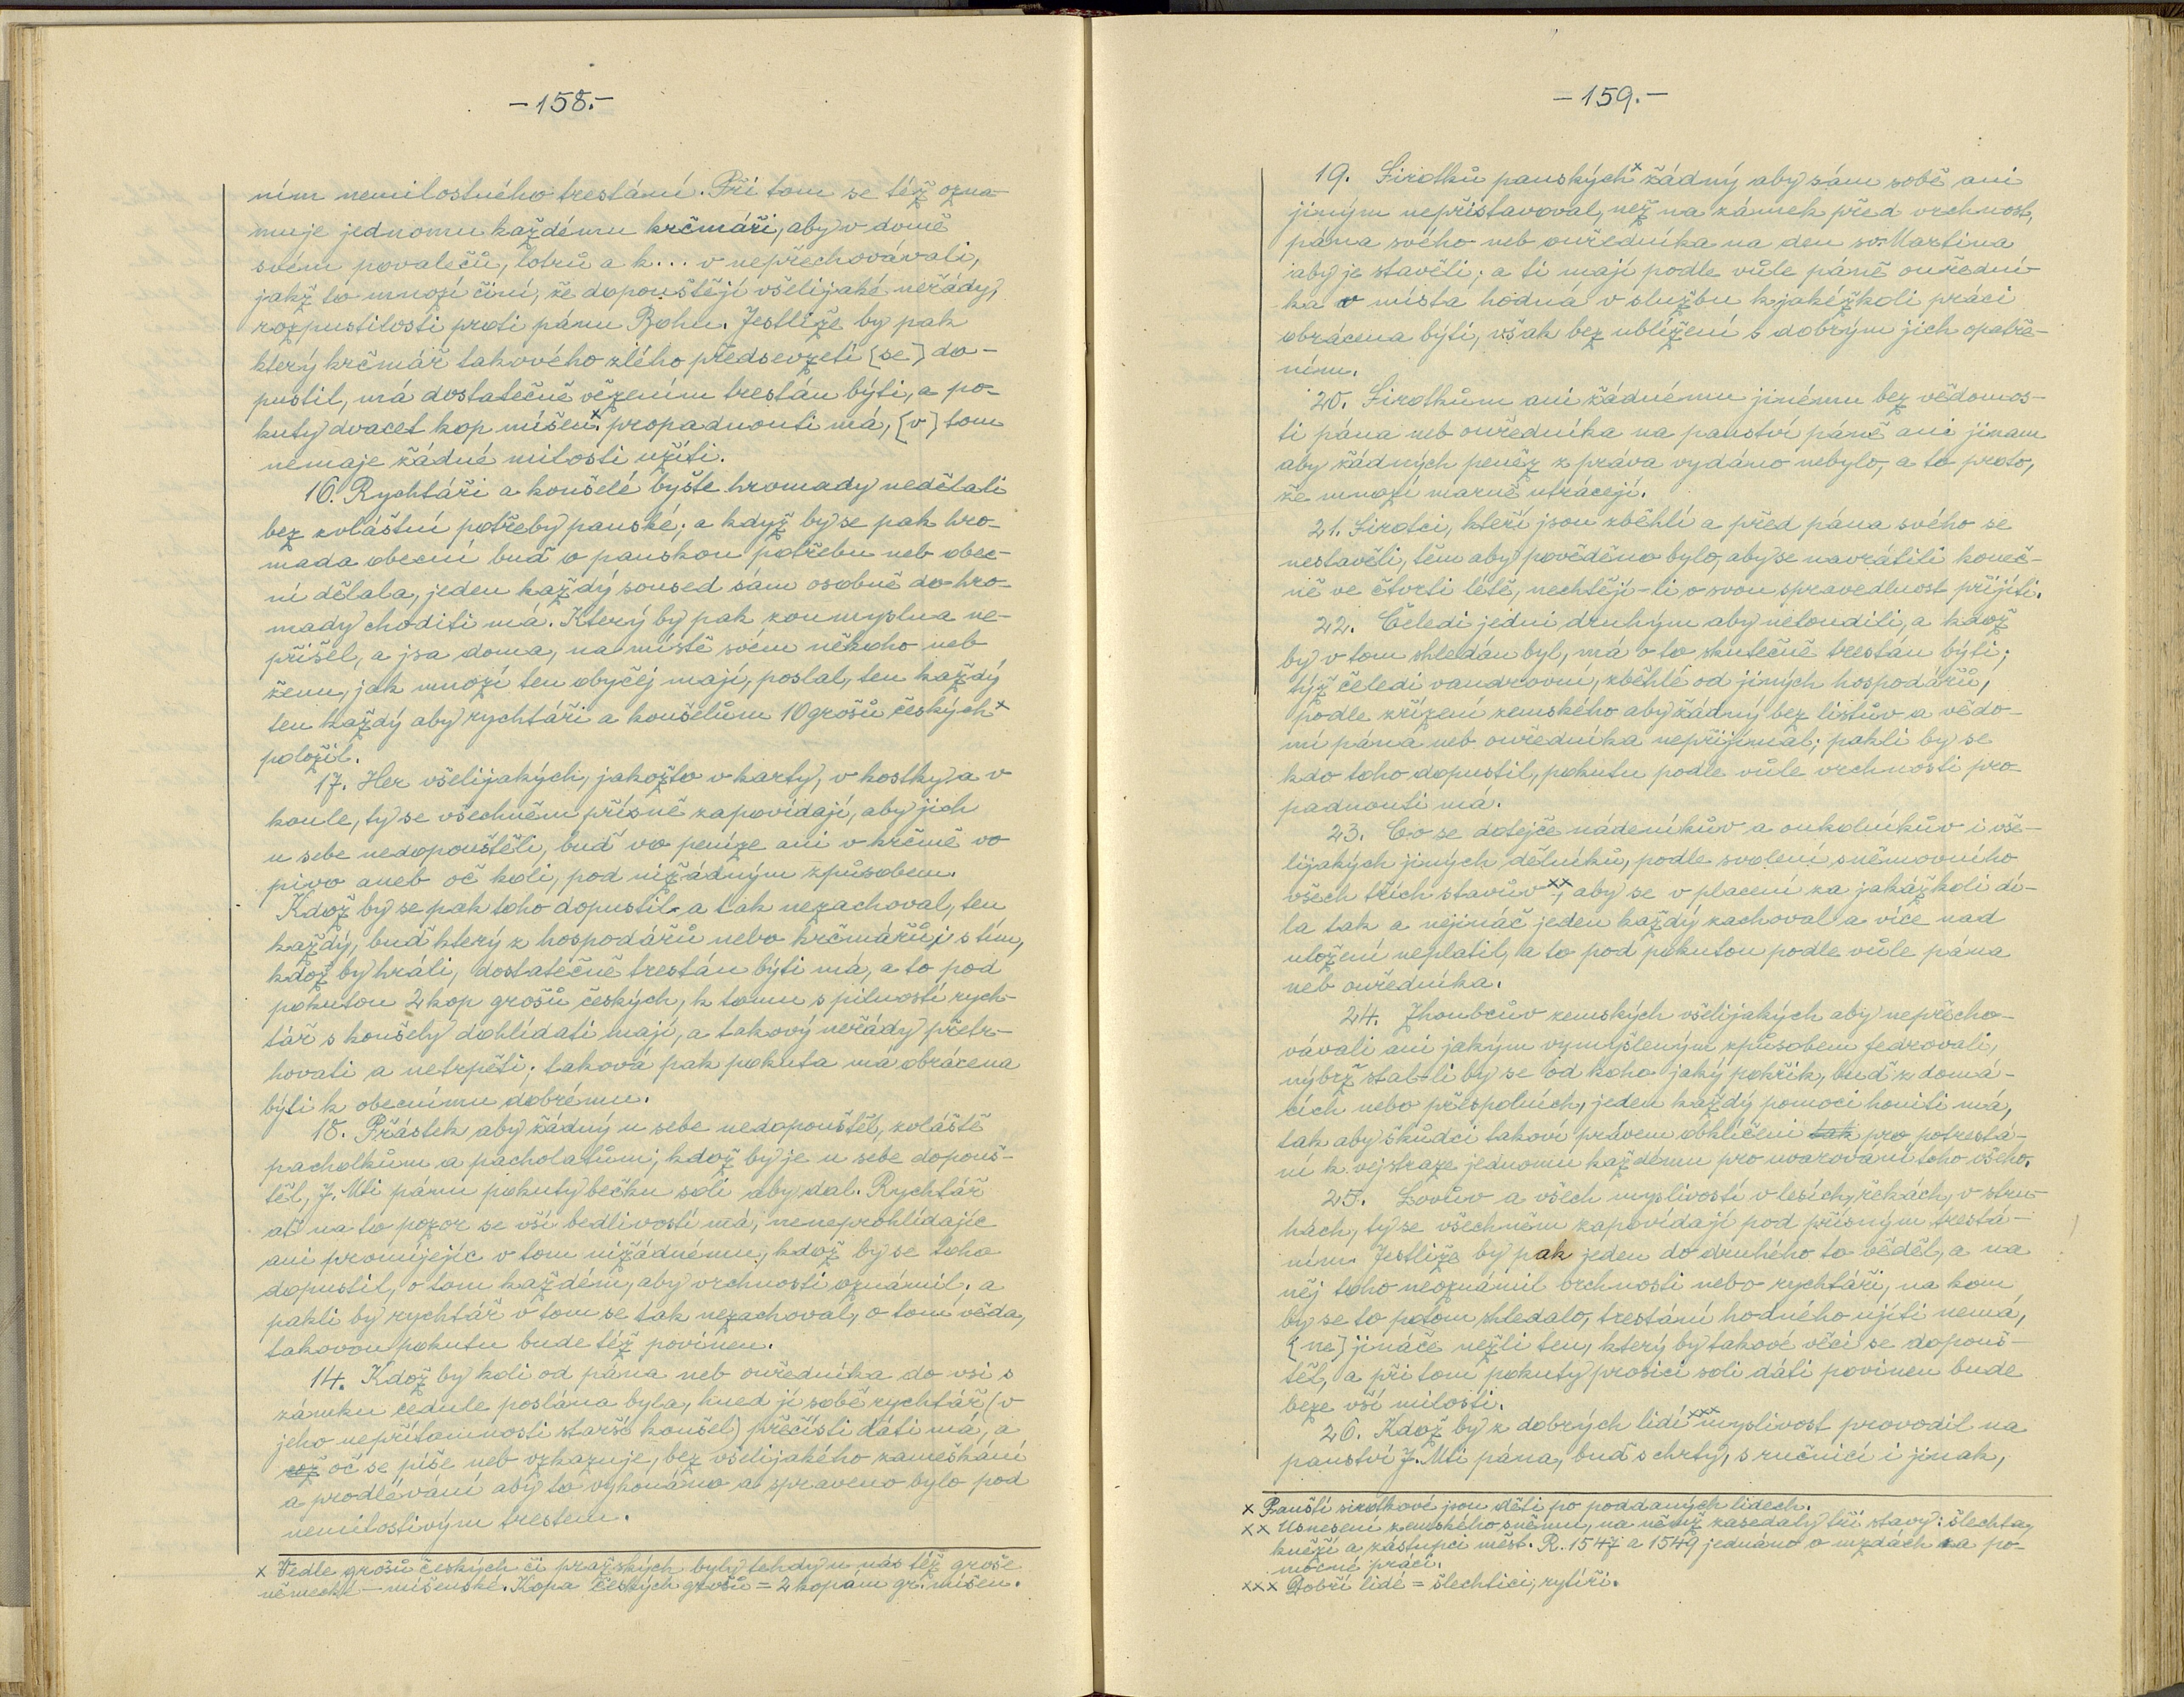 -158.-
ním nemilostného trestání. Při tom se též ozna-
muje jednomu každému krčmáři, aby v domě
svém povalečů, lotrů a k... v nepřechovávali,
jakž to mnozí činí, že dopouštějí všelijaké neřády,
rozpustilosti proti pánu Bohu. Jestliže by pak
který krčmář takového zlého předsevzetí [se] do-
pustil, má dostatečně vězením trestán býti, a po-
kuty dvacet kop míšen.x propadnouti má, [v] tom
nemaje žádné milosti užíti.
16. Rychtáři a konšelé byšte hromady nedělali
bez zvláštní potřeby panské; a když by se pak hro-
mada obecní buď o panskou potřebu neb obec-
ní dělala, jeden každý soused sám osobně do hro-
mady choditi má. Který by pak zoumyslna ne-
přišel, a jsa doma, na místě svém někoho neb
ženu, jak mnozí ten obyčej mají, poslal, ten každý
ten každý aby rychtáři a konšelům 10 grošů českých x
položil.
17. Her všelijakých, jakožto v karty, v kostky a v
koule, ty se všechněm přísně zapovídají, aby jich
u sebe nedopouštěli, buď vo peníze ani v krčmě vo
pivo aneb oč koli, pod nižádným způsobem.
Kdož by se pak toho dopustil a tak nezachoval, ten
každý, buď který z hospodářů nebo krčmářů, i s tím,
kdož by hráli, dostatečně trestán býti má, a to pod
pokutou 2 kop grošů českých, k tomu s pilností rych-
tář s konšely dohlídati mají, a takový neřády přetr-
hovati a netrpěti; taková pak pokuta má obrácena
býti k obecnímu dobrému.
18. Přástek aby žádný u sebe nedopouštěl, zvláště
pacholkům a pacholatům; kdož by je u sebe dopouš-
těl, J. Mti pánu pokuty bečku soli aby dal. Rychtář
ať na to pozor se vší bedlivostí má, neneprohlídajíc
ani promíjejíc v tom nižádnému, kdož by se toho
dopustil, o tom každém, aby vrchnosti oznámil, a
pakli by rychtář v tom se tak nezachoval, o tom věda,
takovou pokutu bude též povinen.
14. Kdož by koli od pána neb ouředníka do vsi s
zámku cedule poslána byla, hned ji sobě rychtář (v
jeho nepřítomnosti starší konšel) přečísti dáti má, a
což oč se píše neb vzkazuje, bez všelijakého zameškání
a prodlévání aby to vykonáno a spraveno bylo pod
nemilostivým trestem.
x Vedle grošů českých či pražských byly tehdy u nás též groše
německé - míšenské. Kopa českých grošů = 2 kopám gr. míšen.
-159.-
19. Sirotků panských x žádný aby sám sobě ani
jiným nepřistavoval, než na zámek před vrchnost,
pána svého neb ouředníka na den sv. Martina
aby je stavěli; a ti mají podle vůle páně ouřední-
ka v místa hodná v službu k jakéžkoli práci
obrácena býti, však bez ublížení s dobrým jich opatře-
ním.
20. Sirotkům ani žádnému jinému bez vědomos-
ti pána neb ouředníka na panství páně ani jinam
aby žádných peněz z práva vydáno nebylo, a to proto,
že mnozí marně utrácejí.
21. Sirotci, kteří jsou zběhlí a před pána svého se
nestavěli, těm aby pověděno bylo, aby se navrátili koneč-
ně ve čtvrti létě, nechtějí-li o svou spravedlnost přijíti.
22. Čeledi jedni druhým aby neloudili, a kdož
by v tom shledán byl, má o to skutečně trestán býti;
týž čeledi vandrovní, zběhlé od jiných hospodářů,
podle zřízení zemského aby žádný bez listův a vědo-
mí pána neb ouředníka nepřijímal; pakli by se
kdo toho dopustil, pokutu podle vůle vrchnosti pro-
padnouti má.
23. Co se dotejče nádeníkův a oukolníkův i vše-
lijakých jiných dělníků, podle svolení sněmovního
všech třích stavův xx, aby se v placení za jakážkoli dí-
la tak a nejináč jeden každý zachoval a více nad
uložení neplatil, a to pod pokutou podle vůle pána
neb ouředníka.
24. Zhoubcův zemských všelijakých aby nepřecho-
vávali ani jakým vymyšleným způsobem fedrovali,
nýbrž stal-li by se od koho jaký pokřik, buď z domá-
cích nebo přespolních, jeden každý pomoci honiti má,
tak aby škůdci takoví právem obklíčeni tak pro potrestá-
ní k vejstraze jednomu každému pro uvarování toho všeho.
25. Lovův a všech myslivostí v lesích, řekách, v stru-
hách, ty se všechněm zapovídají pod přísným trestá-
ním. Jestliže by pak jeden do druhého to věděl, a na
něj toho neoznámil vrchnosti nebo rychtáři, na kom
by se to potom shledalo, trestání hodného ujíti nemá,
[ne] jináče nežli ten, který by takové věci se dopouš-
těl, a při tom pokuty prosici soli dáti povinen bude
beze vší milosti.
26. Kdož by z dobrých lidí xxx myslivost provodil na
panství J. Mti pána, buď s chrty, s ručnicí i jinak,
x Panští sirotkové jsou děti po poddaných lidech.
xx Usnesení zemského sněmu, na němž zasedaly tři stavy: šlechta,
kněží a zástupci měst. R. 1547 a 1549 jednáno o mzdách za po-
mocné práci.
xxx Dobří lidé = šlechtici, rytíři.